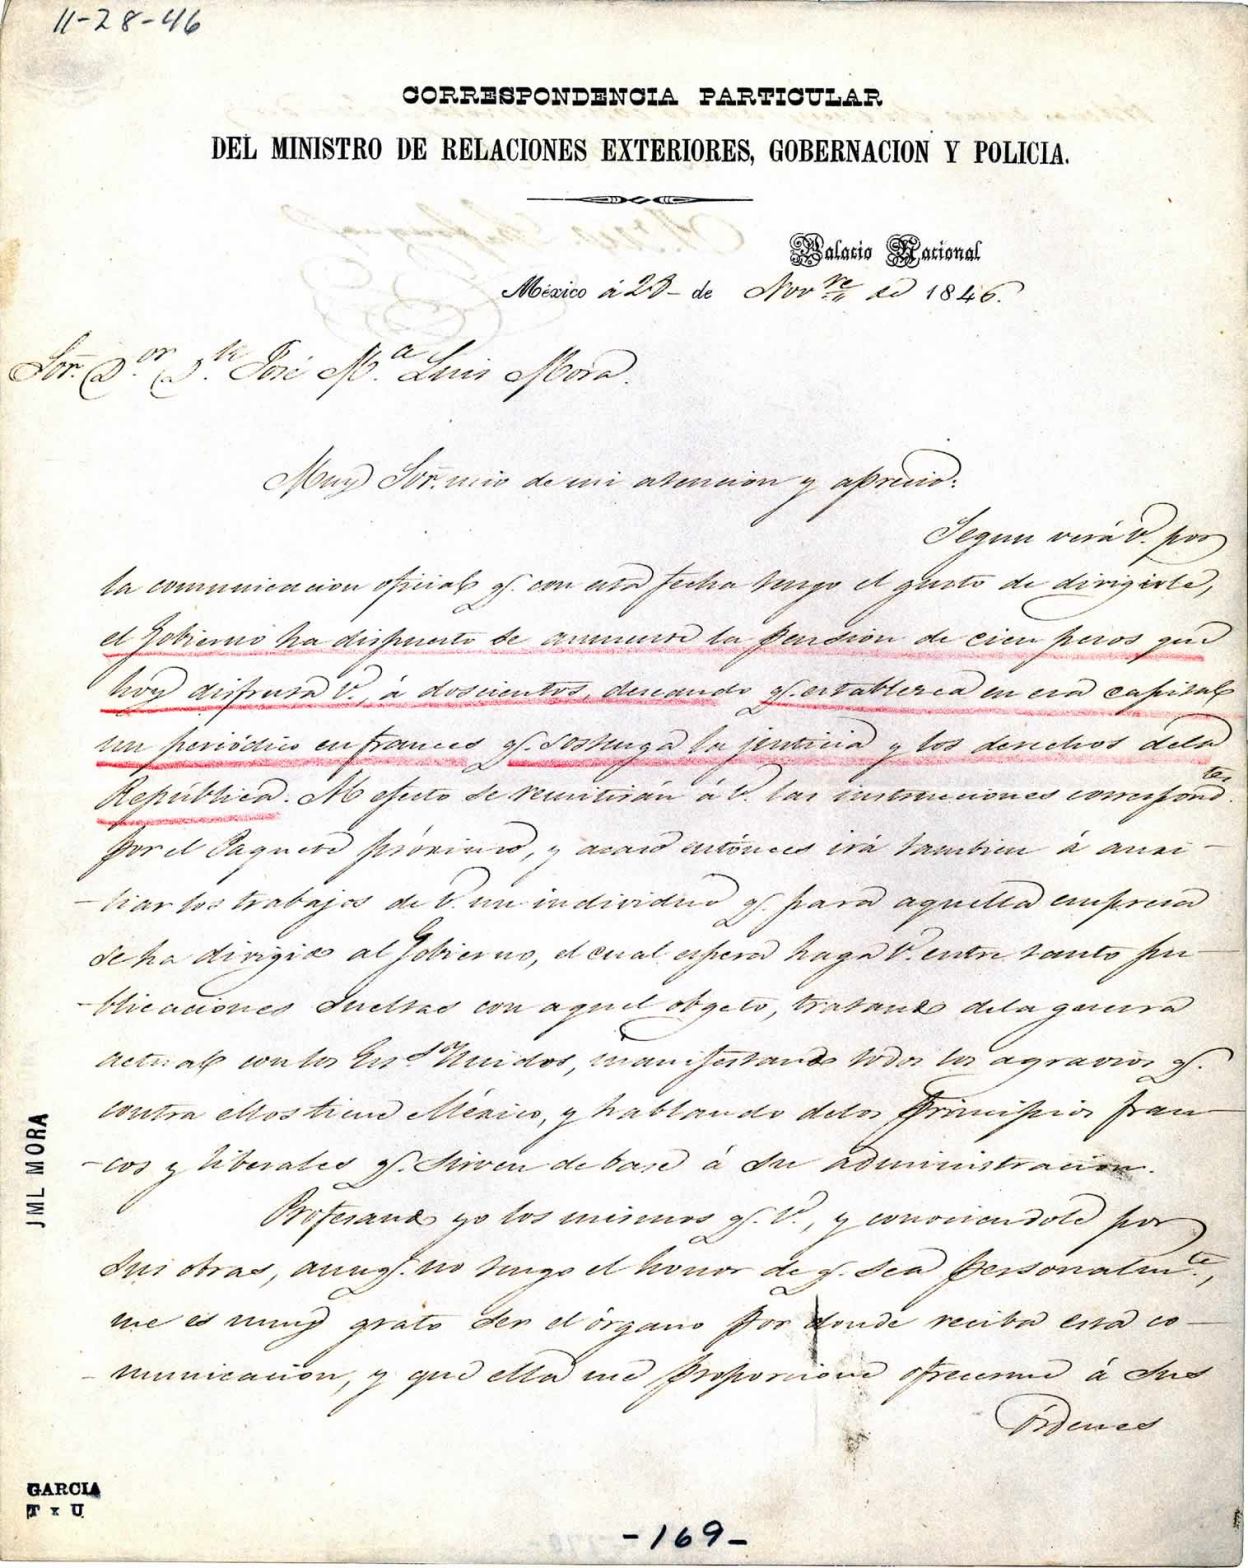 11-28-46
CORRESPONDENCIA PARTICULAR
DEL MINISTRO DE RELACIONES EXTERIORES, GOBERNACION Y POLICIA.
Palacio Nacional
México á 28 de Nov.re de 1846.
Sor. D.or D.n José M.a Luis Mora.
Muy Sor. mio de mi atencion y aprecio:
Segun verá V. por
la comunicacion oficial q. con esta fecha tengo el gusto de dirigirle,
el Gobierno ha dispuesto se aumente la pension de cien pesos que
hoy disfruta V., á doscientos, deseando q. establezca en esa capital
un periódico en frances q. sostenga la justicia y los derechos dela
República. Al efecto se remitirán á V. las instrucciones correspond.tes
por el Paquete próximo, y acaso entónces irá tambien á auxi-
-liar los trabajos de V. un individuo q. para aquella empresa
se ha dirigido al Gobierno, el cual espera haga V. entre tanto pu-
-blicaciones sueltas con aquel objeto, tratando dela guerra
actual con los Est.dos Unidos, manifestando todos los agravios q.
contra ellos tiene México, y hablando delos principios fran-
-cos y liberales q. sirven de base á su administracion.
Profesando yo los mismos q. V., y conociendole por
sus obras, aunq. no tengo el honor de q. sea personalm.te,
me es muy grato ser el órgano por donde reciba esta co-
-municacion, y que ella me proporcione ofrecerme á sus
órdenes
JML MORA
GARCIA
-169-